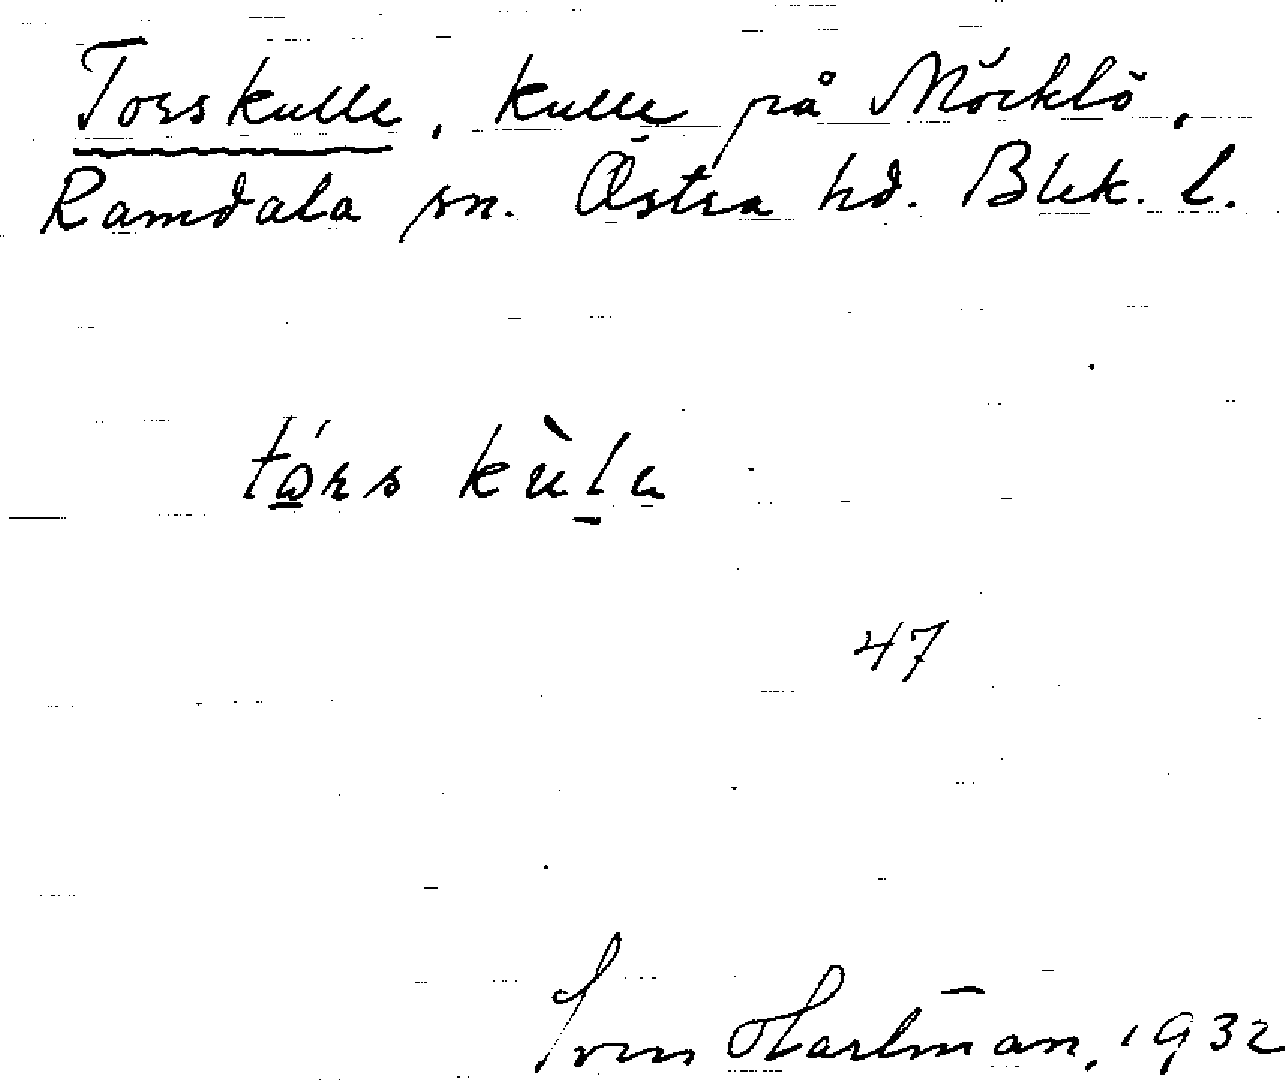 Torskulle, kulle på Möcklö,
Ramdala sn. Östra hd. Blek. l.
tórs kùla
47
Sven Hartman, 1932